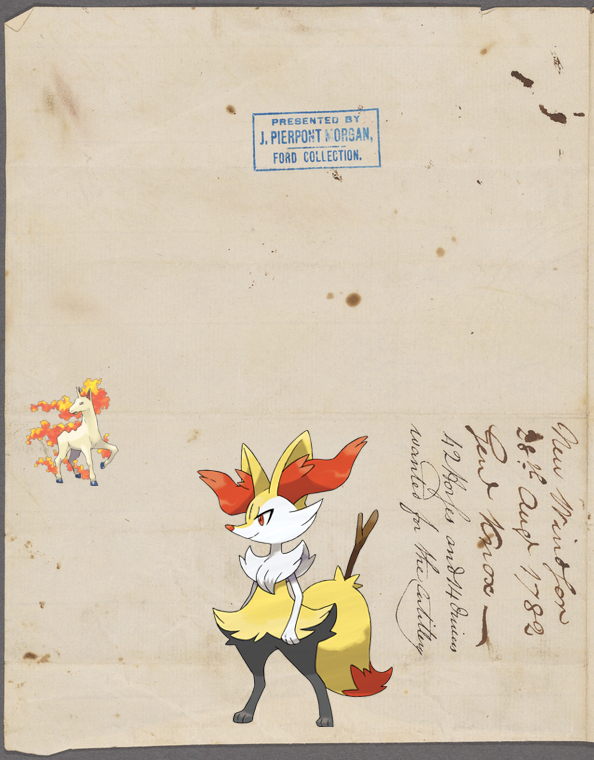 PRESENTED BY
J. PIERPONT MORGAN,
FORD COLLECTION.
New Windsor
28th Augt 1782
Genl Knox —
42 Horses and 14 drivers
wanted for the Artillery